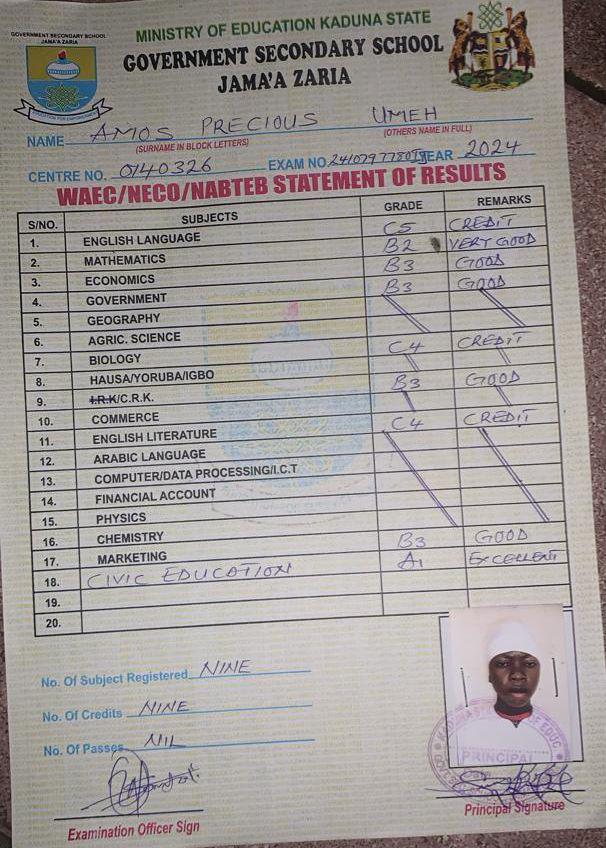 GOVERNMENT SECONDARY SCHOOL
JAMA'A ZARIA
MINISTRY OF EDUCATION KADUNA STATE
GOVERNMENT SECONDARY SCHOOL
JAMA'A ZARIA
NAME AMOS PRECIOUS UMEH
(SURNAME IN BLOCK LETTERS) (OTHERS NAME IN FULL)
CENTRE NO. 0140326 EXAM NO YEAR 2024
WAEC/NECO/NABTEB STATEMENT OF RESULTS
S/NO. SUBJECTS GRADE REMARKS
1. ENGLISH LANGUAGE C5 CREDIT
2. MATHEMATICS B2 VERY GOOD
3. ECONOMICS B3 GOOD
4. GOVERNMENT B3 GOOD
5. GEOGRAPHY
6. AGRIC. SCIENCE
7. BIOLOGY C4 CREDIT
8. HAUSA/YORUBA/IGBO
9. I.R.K/C.R.K. B3 GOOD
10. COMMERCE
11. ENGLISH LITERATURE C4 CREDIT
12. ARABIC LANGUAGE
13. COMPUTER/DATA PROCESSING/I.C.T
14. FINANCIAL ACCOUNT
15. PHYSICS
16. CHEMISTRY
17. MARKETING B3 GOOD
18. CIVIC EDUCATION A1 EXCELLENT
19.
20.
No. Of Subject Registered NINE
No. Of Credits NINE
No. Of Passes NIL
PRINCIPAL
Examination Officer Sign
Principal Signature